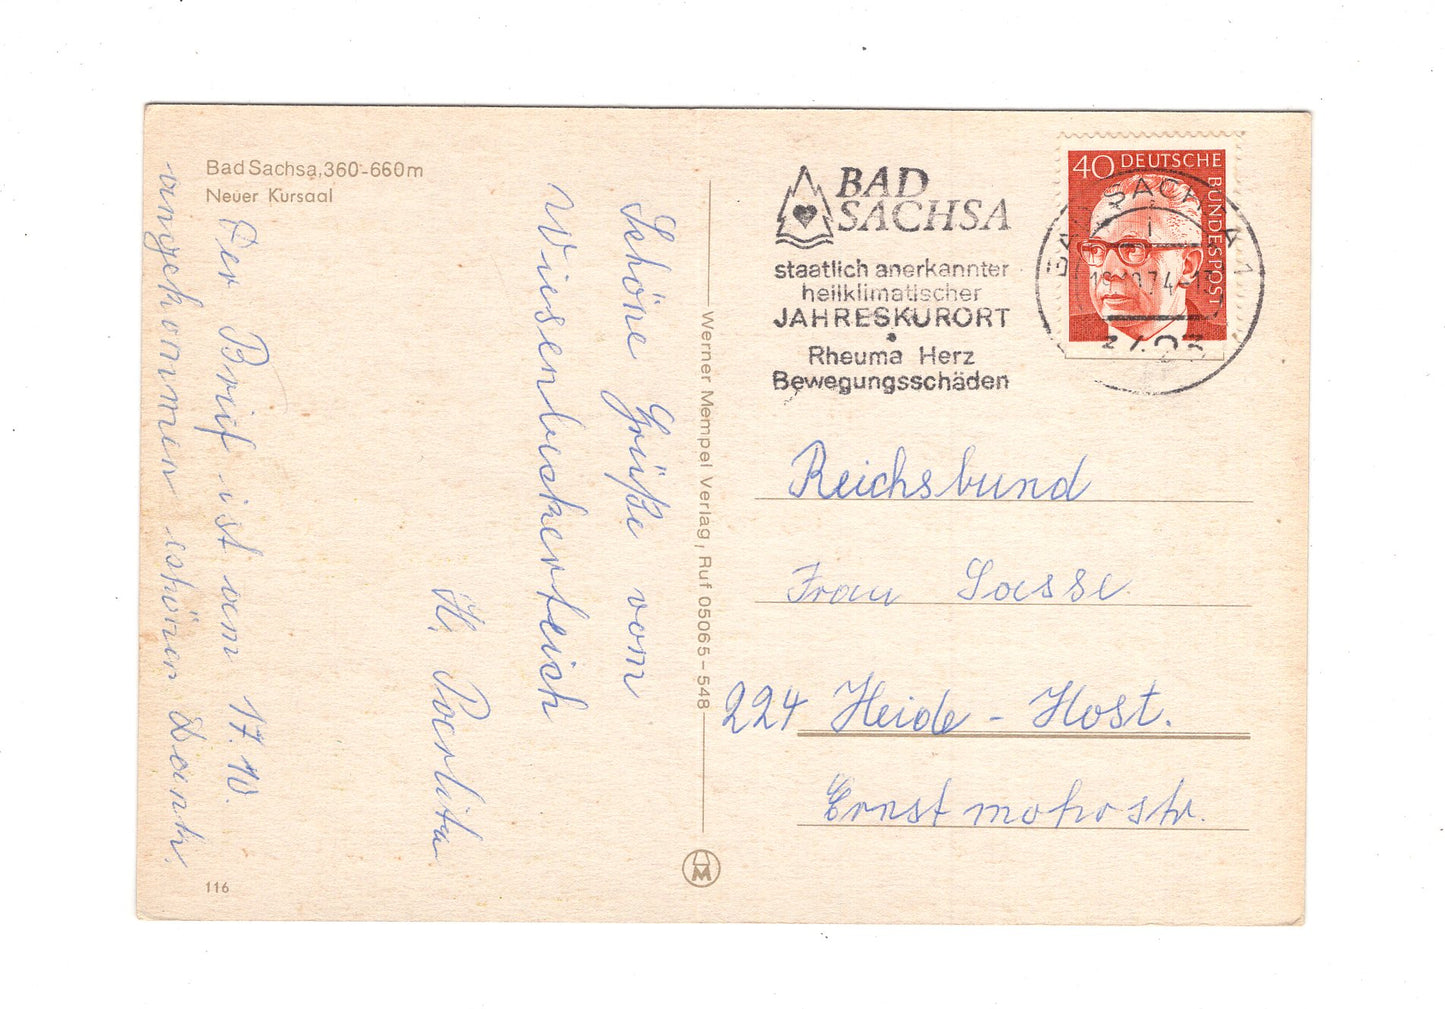 Bad Sachsa, 360-660m
Neuer Kursaal
Schöne Grüße vom
Wiesenbeckerteich
H. Poerlitu
Der Brief ist am 17.10.
angekommen schönen Dank.
116
Werner Mempel Verlag, Ruf 05065-548
M
BAD
SACHSA
staatlich anerkannter
heilklimatischer
JAHRESKURORT
Rheuma Herz
Bewegungsschäden
40 DEUTSCHE BUNDESPOST
BAD SACHSA 1
74-13
Reichsbund
Frau Sasse
224 Heide - Host.